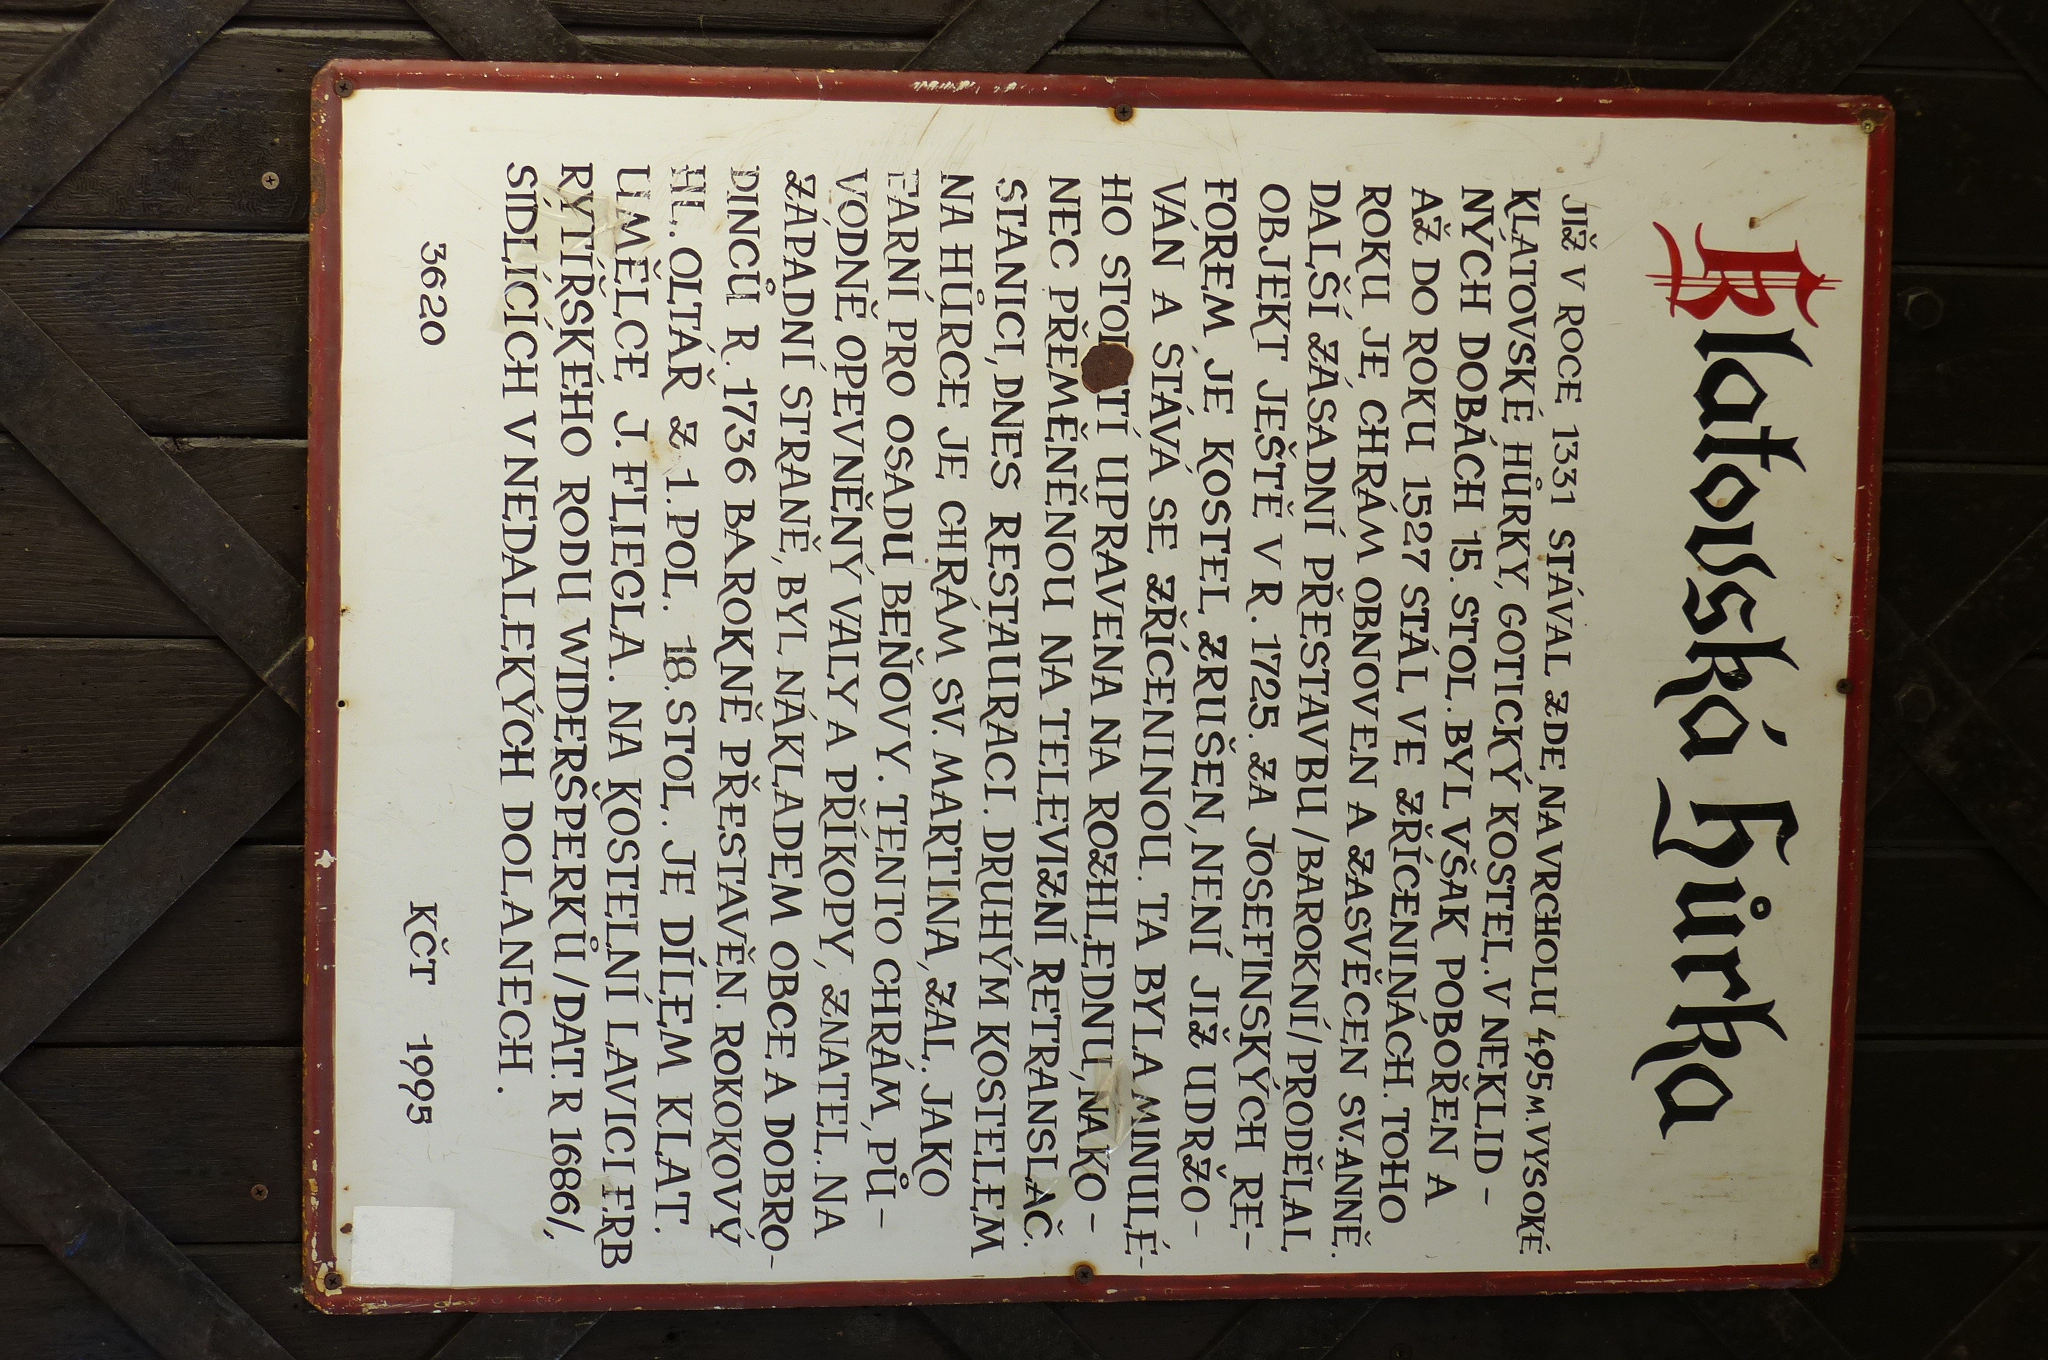 Klatovská Hůrka
JIŽ V ROCE 1331 STÁVAL ZDE, NA VRCHOLU 495 M. VYSOKÉ
KLATOVSKÉ HŮRKY, GOTICKÝ KOSTEL. V NEKLID-
NÝCH DOBÁCH 15. STOL. BYL VŠAK POBOŘEN A
AŽ DO ROKU 1527 STÁL VE ZŘÍCENINÁCH. TOHO
ROKU JE CHRÁM OBNOVEN A ZASVĚCEN SV. ANNĚ.
DALŠÍ ZÁSADNÍ PŘESTAVBU /BAROKNÍ/ PRODĚLAL
OBJEKT JEŠTĚ V R. 1725. ZA JOSEFINSKÝCH RE-
FOREM JE KOSTEL ZRUŠEN, NENÍ JIŽ UDRŽO-
VÁN A STÁVÁ SE ZŘÍCENINOU. TA BYLA MINULÉ-
HO STOLETÍ UPRAVENA NA ROZHLEDNU, NAKO-
NEC PŘEMĚNĚNOU NA TELEVIZNÍ RETRANSLAČ.
STANICI, DNES RESTAURACI. DRUHÝM KOSTELEM
NA HŮRCE JE CHRÁM SV. MARTINA, ZAL. JAKO
FARNÍ PRO OSADU BEŇOVY. TENTO CHRÁM, PŮ-
VODNĚ OPEVNĚNÝ VALY A PŘÍKOPY, ZNATEL. NA
ZÁPADNÍ STRANĚ, BYL NÁKLADEM OBCE A DOBRO-
DINCŮ R. 1736 BAROKNĚ PŘESTAVĚN. ROKOKOVÝ
HL. OLTÁŘ Z 1. POL. 18. STOL. JE DÍLEM KLAT.
UMĚLCE J. FLIEGLA. NA KOSTELNÍ LAVICI ERB
RYTÍŘSKÉHO RODU WIDERŠPERKŮ /DAT. R 1686/,
SÍDLÍCÍCH V NEDALEKÝCH DOLANECH.
3620 KČT 1995